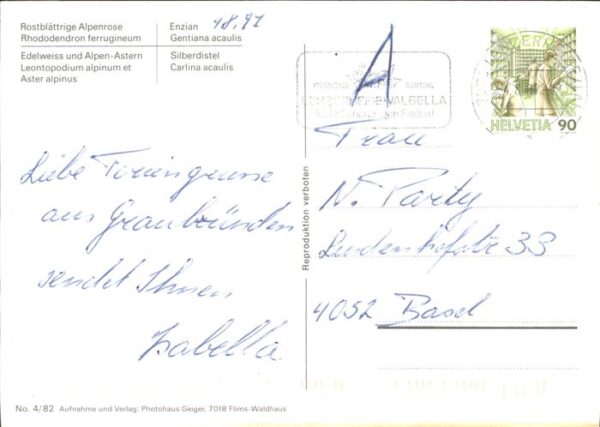 Rostblättrige Alpenrose
Rhododendron ferrugineum
Enzian
Gentiana acaulis
Edelweiss und Alpen-Astern
Leontopodium alpinum et
Aster alpinus
Silberdistel
Carlina acaulis
A
HELVETIA 90
VALBELLA
Reproduktion verboten
Liebe Feriengrüsse
aus Graubünden
sendet Ihnen
Isabella
Frau
N. Parity
Lindenhofstr 33
4052 Basel
No. 4/82 Aufnahme und Verlag: Photohaus Geiger, 7018 Flims-Waldhaus